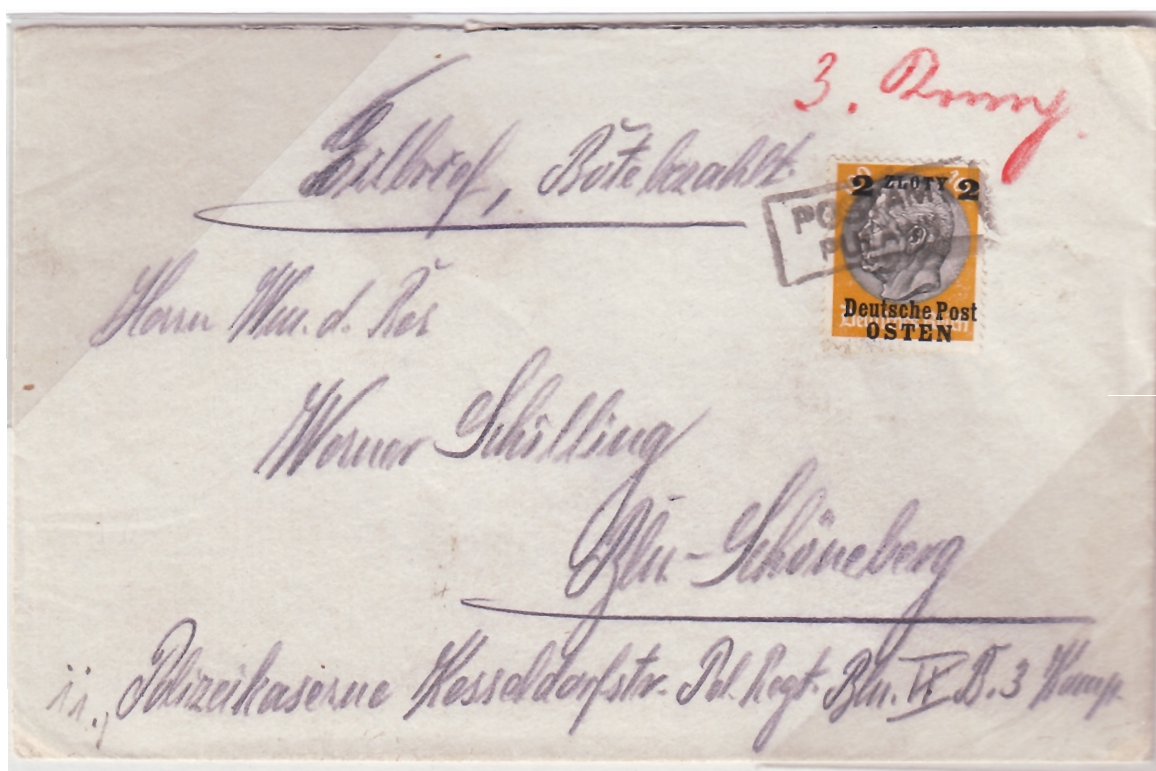 3. Komp.
Eilbrief, Bote bezahlt.
2 ZLOTY 2
POSTAMT
Deutsche Post
OSTEN
Herrn Wm. d. Res
Werner Schilling
Bln-Schöneberg
Polizeikaserne Kesseldorfstr. Pol. Regt. Bln. IX B. 3 Komp.